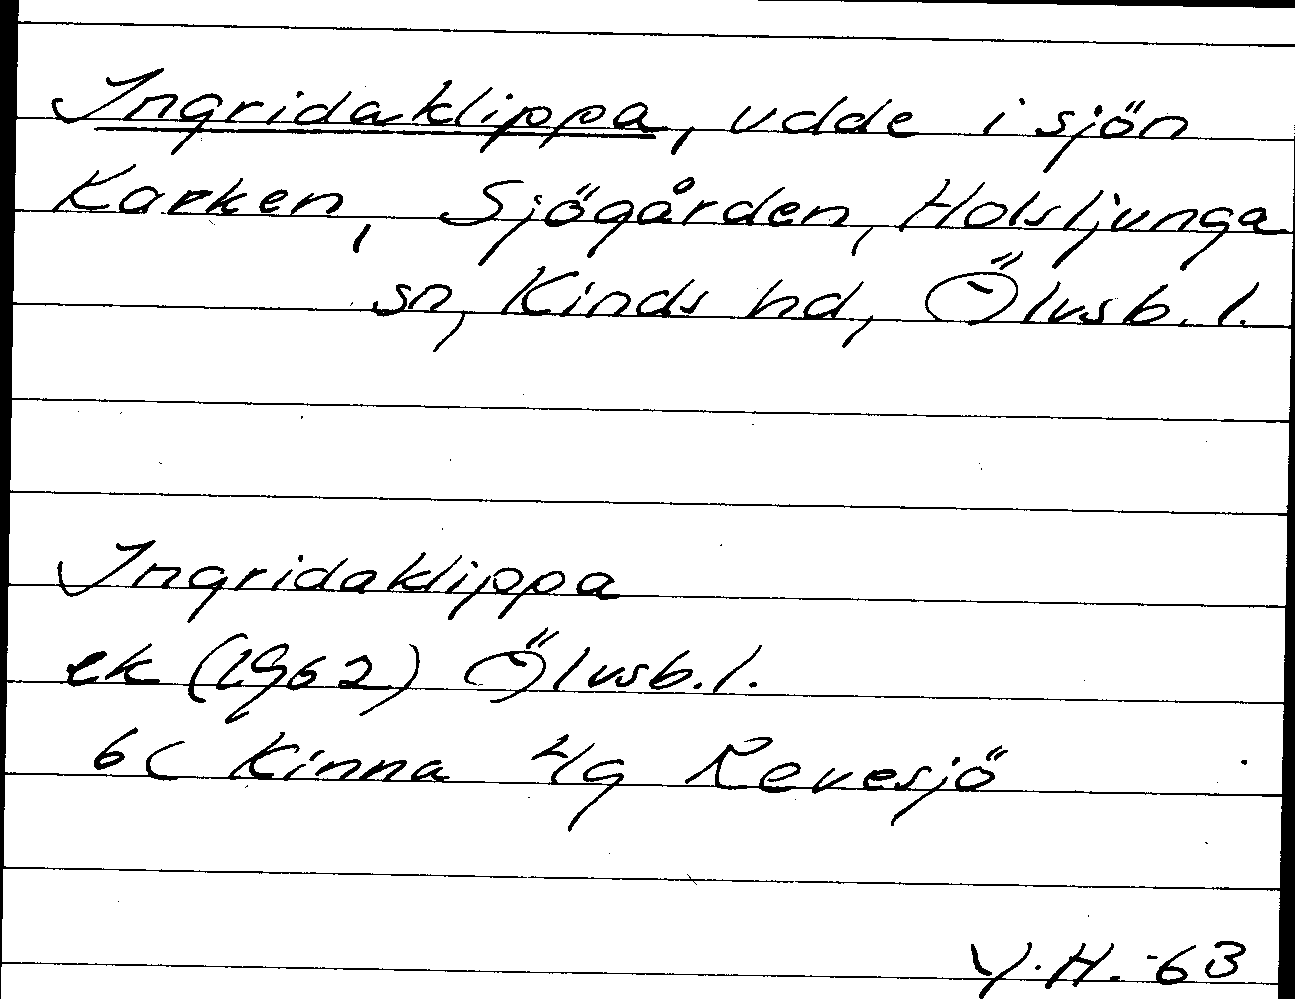 Ingridaklippa, udde i sjön
Karken, Sjögården, Holsljunga
sn, Kinds hd, Älvsb. l.
Ingridaklippa
ek (1962) Älvsb. l.
6C Kinna 4g Revesjö
Y. H. -63